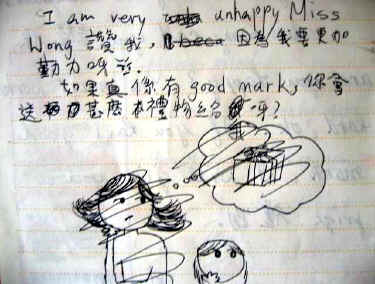 I am very unhappy Miss
Wong 說我, 因為我要更加
勤力呀
如果你有good mark, 你會
送甚麼禮物給我呀?